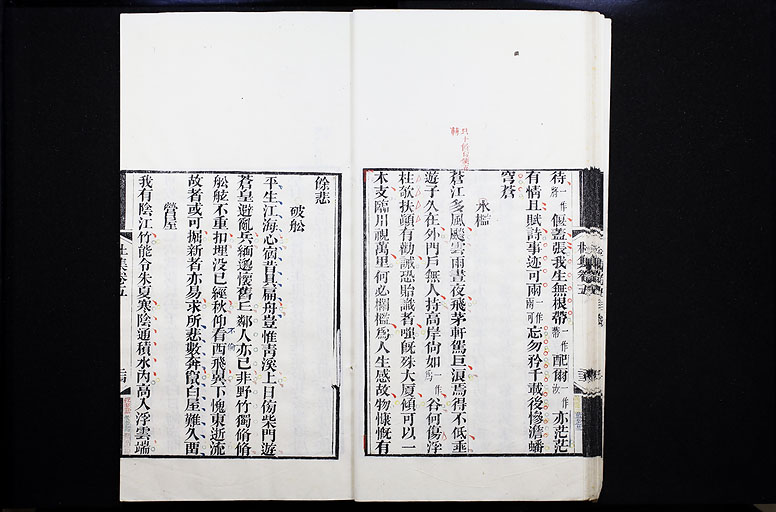 待一作將偃蓋張我生無根帶一作蒂配爾一作汝亦茫茫
有情且賦詩事迹可兩一作兩可忘勿矜千載後慘澹蟠
穹蒼
水檻
蒼江多風飈雲雨晝夜飛茅軒駕巨浪焉得不低垂
遊子久在外門戶無人持高岸尚如一作爲谷何傷浮
柱欹扶顛有勸誡恐貽識者嗤既殊大廈傾可以一
木支臨川視萬里何必欄檻爲人生感故物慷慨有
餘悲
破船
平生江海心宿昔具扁舟豈惟青溪上日傍柴門遊
蒼皇避亂兵緬邈懷舊丘鄰人亦已非野竹獨脩脩
船舷不重扣埋沒已經秋仰看西飛翼下愧東逝流
故者或可掘新者亦易求所悲數奔竄白屋難久留
營屋
我有陰江竹能令朱夏寒陰通積水內高入浮雲端
杜集卷五